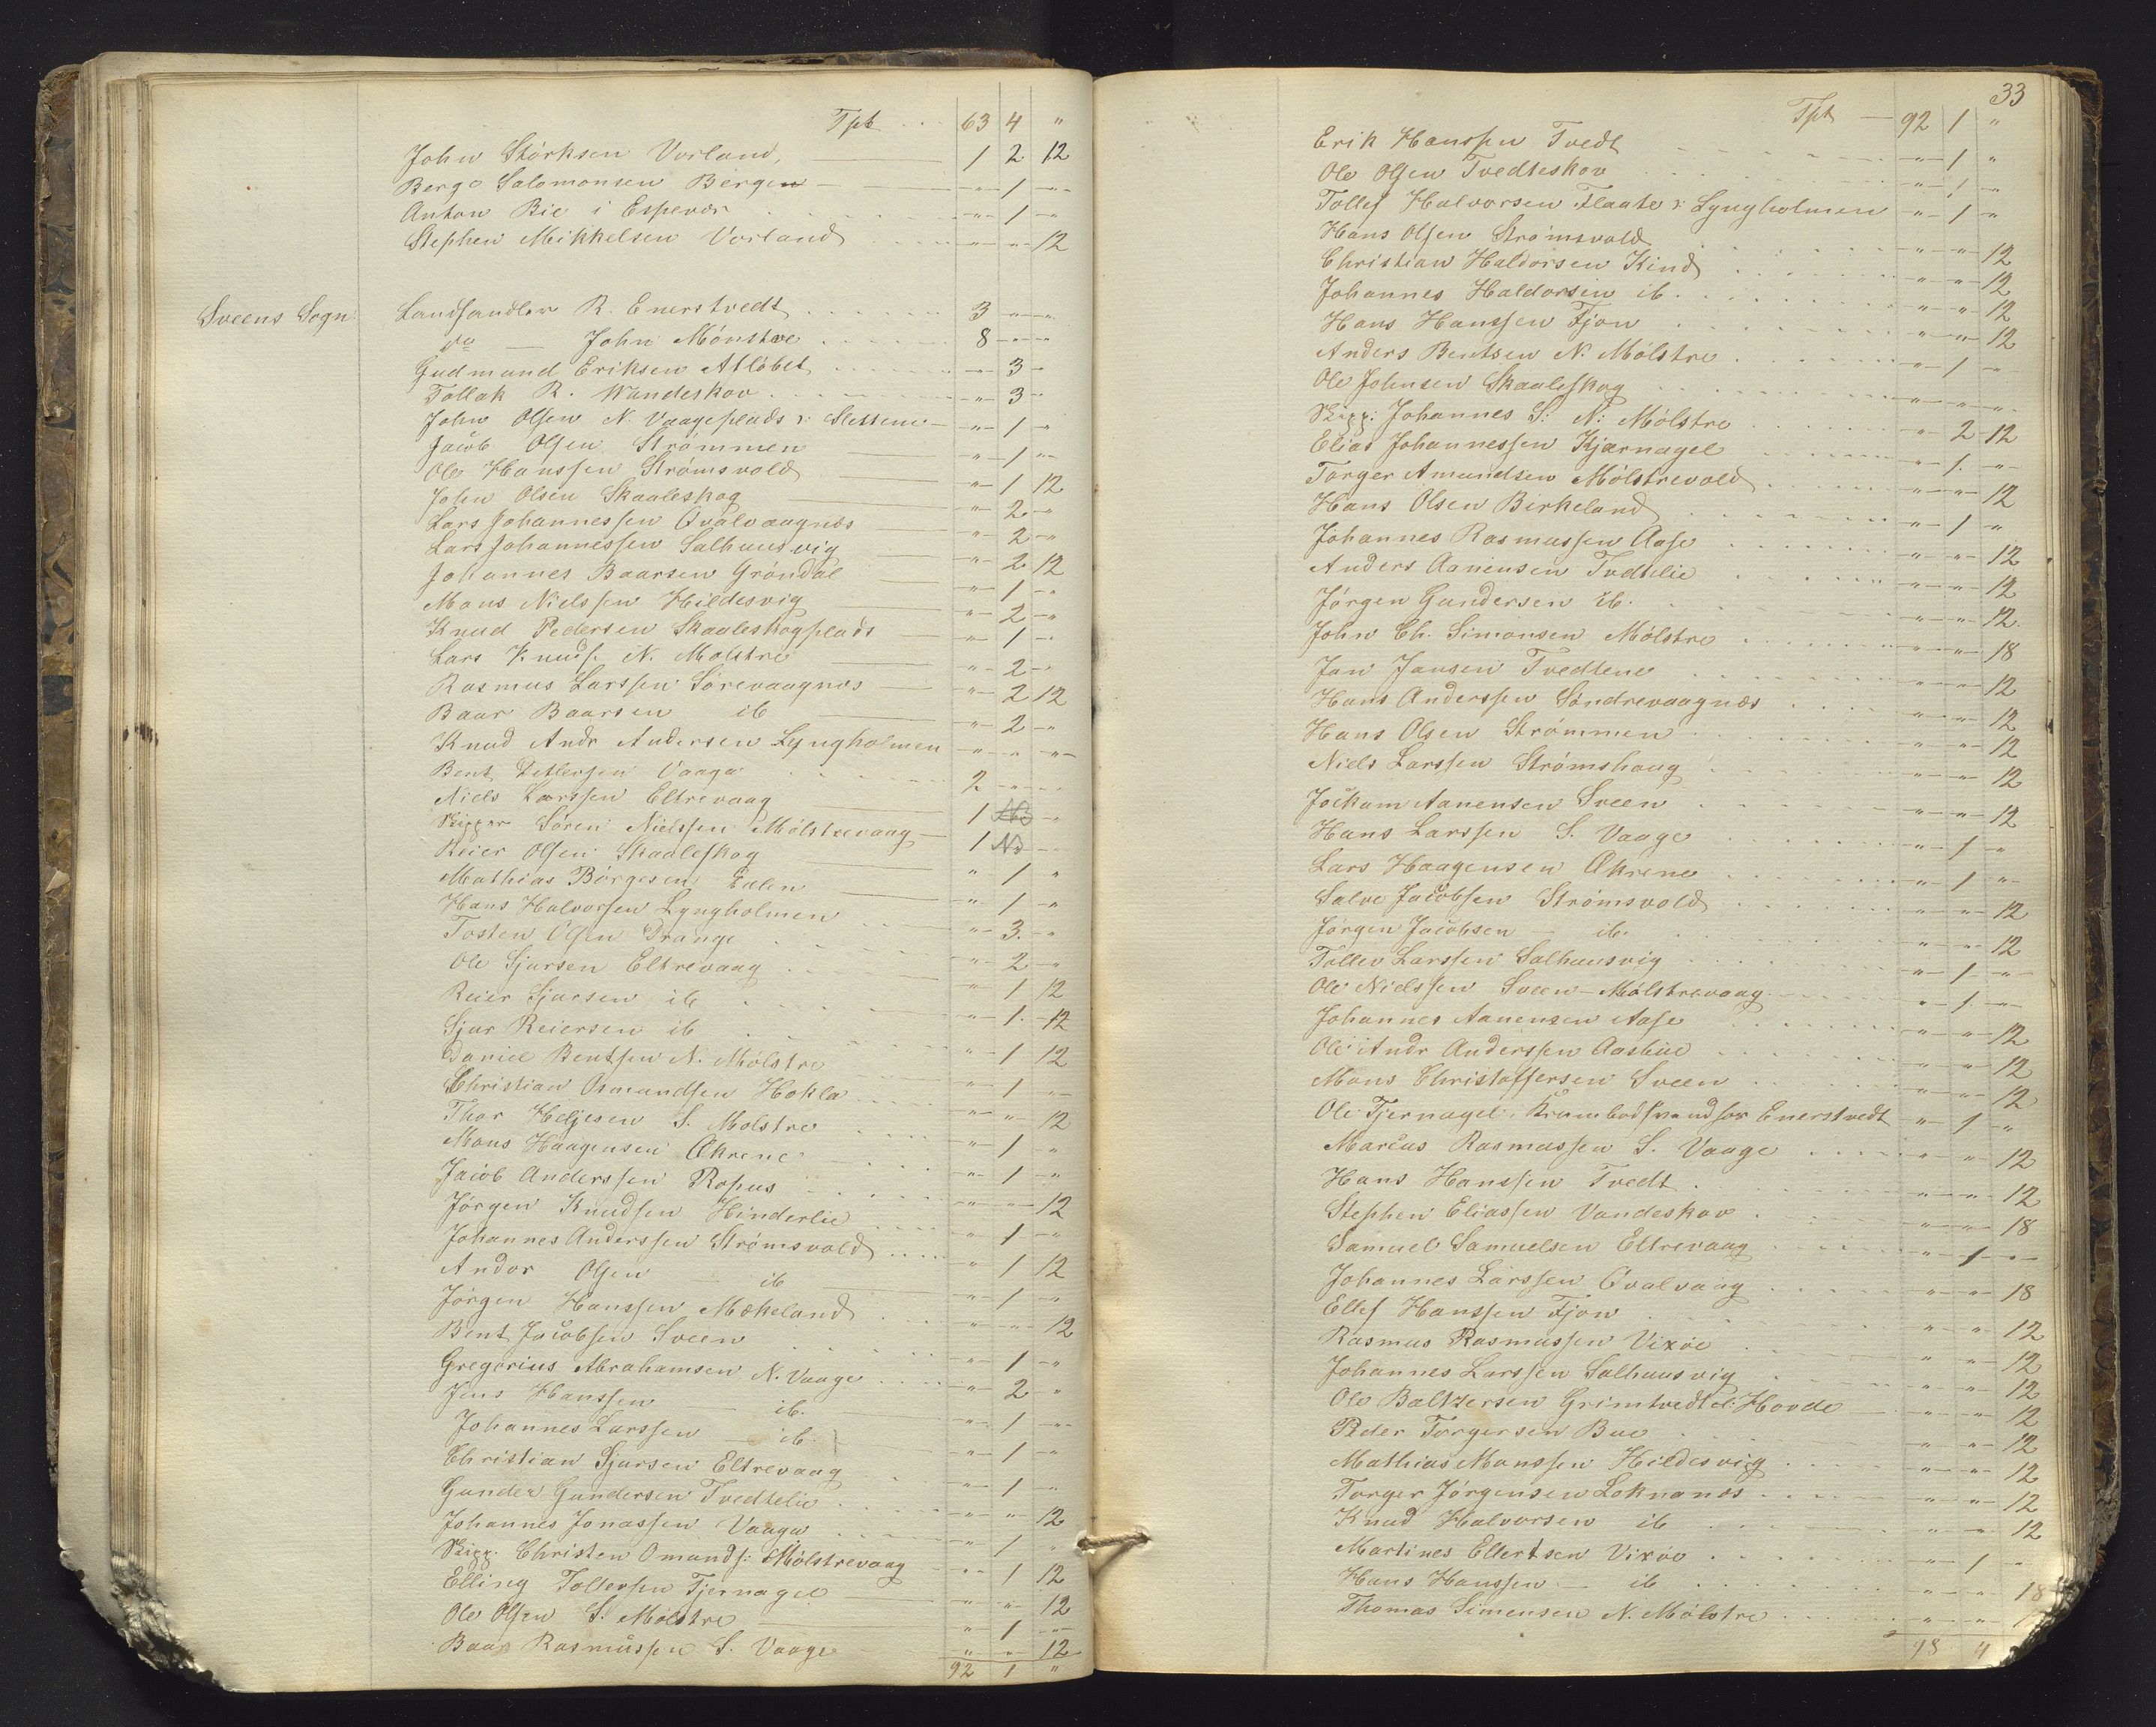 Tpt 63 4 "
John Störksen Vorland, 1 2 12
Berge Salomonsen Bergen " 1 "
Anton Bie i Espevær " 1 "
Stephen Mikkelsen Vorland " " 12
Sveens Sogn Landhandler R. Enerstvedt 3 " "
do John Mönstre 8 " "
Gudmund Eriksen Atlöbet " 3 "
Tollak R. Wandeskov " 3 "
John Olsen N. Vaageplads i Slettene " 1 "
Jacob Olsen Strömmen " 1 "
Ole Hanssen Strömsvold " 1 12
John Olsen Skaaleskog " 2 "
Lars Johannessen Qvalvaagnæs " 2 "
Lars Johannessen Salhuusvig " 2 12
Johannes Baarsen Gröndal " 1 "
Mons Nielssen Hildesvig " 2 "
Knud Pedersen Skaaleskogplads " 1 "
Lars Knuds. N. Mölstre " 2 "
Rasmus Larssen Sörevaagnæs " 2 12
Baar Baarsen ib " 2 "
Knud Andr Andersen Lyngholmen " " "
Bent Vaage 2 " "
Niels Larssen Eltrevaag 1 "
Skipper Sören Nielssen Mölstrevaag 1 "
Reier Olsen Skaaleskog " 1 "
Mathias Börgesen " 1 "
Hans Halvorsen Lyngholmen " 3 "
Tosten Olsen Drange " 2 "
Ole Sjursen Eltrevaag " 1 12
Reier Sjursen ib " 1 12
Sjur Reiersen ib " 1 12
Daniel Bentsen N. Mölstre " 1 "
Christian Osmundsen Hokla " " 12
Thor Heljesen S. Mölstre " 1 "
Mons Haagensen Økrene " 1 "
Jacob Anderssen Ropeus " " 12
Jörgen Knudsen Hinderlie " 1 "
Johannes Anderssen Strömsvold " 1 12
Andor Olsen ib " 1 "
Jörgen Hanssen Mækeland " " 12
Bent Jacobsen Sveen " 1 "
Gregorius Abrahamsen N. Vaage " 2 "
Jens Hanssen ib. " 1 "
Johannes Larssen ib. " 1 "
Christian Sjursen Eltrevaag " 1 "
Gunder Gundersen Tvedtelie " " 12
Johannes Jonassen Vaage " 1 "
Skipp. Christen Omunds: Mölstrevaag " 1 12
Elling Tollefsen Tjernagel " " 12
Ole Olsen S. Mölstre " 1 "
Baar Rasmussen S. Vaage " " 12
92 1 "
33
Tpt 92 1 "
Erik Hanssen Tvedt " 1 "
Ole Olsen Tvedteskov " 1 "
Tollef Halvorsen Flaate i Lyngholmen " 1 "
Hans Olsen Strömsvold " " 12
Christian Haldorsen Kind " " 12
Johannes Haldorsen ib. " " 12
Hans Hanssen Fjon " " 12
Anders Bentsen N. Mölstre " 1 "
Ole Johnsen Skaaleskog " " "
Skipp: Johannes S. N: Mölstre " 2 12
Elias Johannessen Kjærnagel " 1 "
Torger Amundsen Mölstrevold " " 12
Hans Olsen Birkeland " 1 "
Johannes Rasmussen Aase " " 12
Anders Aanensen Tvedtelie " " 12
Jörgen Gundersen ib. " " 12
John Ch. Simonsen Mölstre " " 18
Jan Jansen Tvedtene " " 12
Hans Anderssen Söndrevaagnæs " " 12
Hans Olsen Strömmen " " 12
Niels Larssen Strömshaug " " 12
Jockum Aanensen Sveen " " 12
Hans Larssen S. Vaage " 1 "
Lars Haagensen Økrene " 1 "
Salve Jacobsen Strömsvold " " 12
Jörgen Jacobsen ib. " " 12
Tollev Larssen Salhuusvig " 1 "
Ole Nielssen Sveen-Mölstrevaag " 1 "
Johannes Aanensen Aase " " 12
Ole Andr Anderssen Aasbue " " 12
Mons Christoffersen Sveen " " 12
Ole Tjernagel, Krambodsvend for Enerstvedt " 1 "
Marcus Rasmussen S. Vaage " " 12
Hans Hanssen Tvedt " " 12
Stephen Eliassen Vandeskov " " 18
Samuel Samuelsen Eltrevaag " 1 "
Johannes Larssen Qvalvaag " " 18
Ellef Hanssen Fjon " " 12
Rasmus Rasmussen Vixöe " " 12
Johannes Larssen Salhuusvig " " 12
Ole Baltzersen Grimtvedt i Hovde " " 12
Peder Torgersen Bue " " 12
Mathias Monssen Hildesvig " " 12
Torger Jörgensen Loknanæs " " 12
Knud Halvorsen ib " " 12
Martines Ellertsen Vixöe " 1 "
Hans Hanssen ib " " 18
Thomas Simensen N. Mölstre " "
98 4